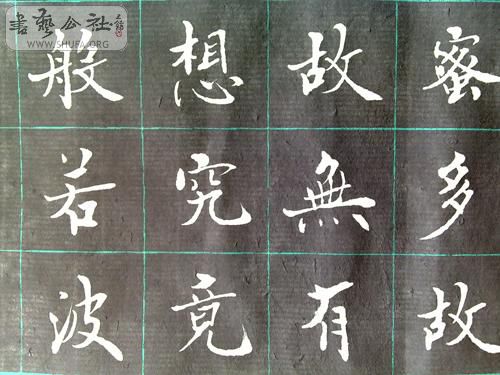 蜜多故
故無有
想究竟
般若波
書藝公社
WWW.SHUFA.ORG